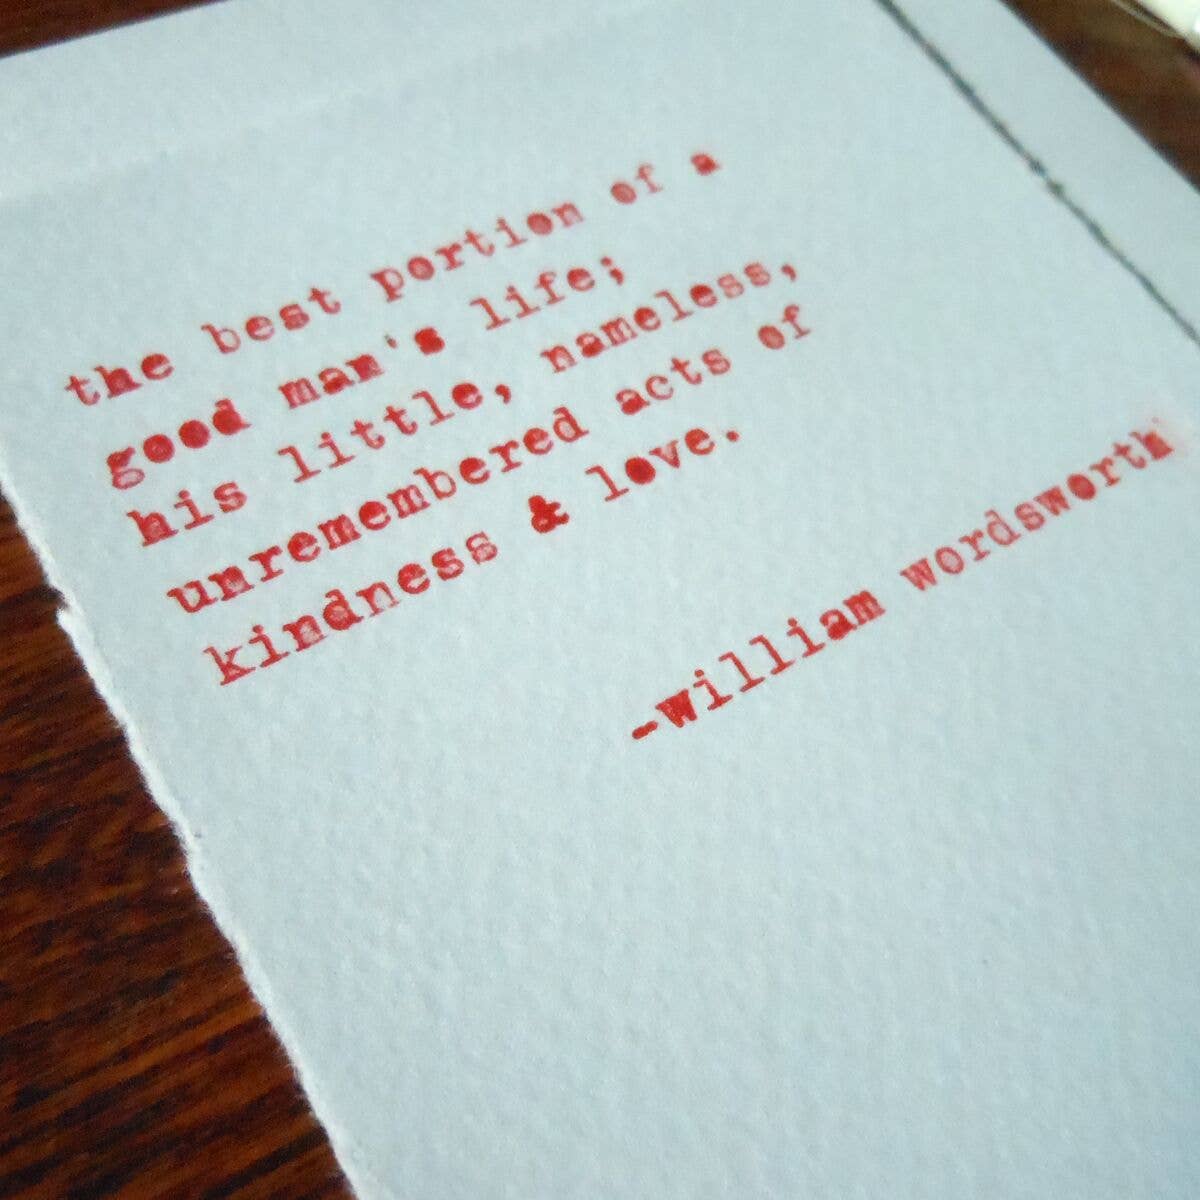 the best portion of a
good man's life;
his little, nameless,
unremembered acts of
kindness & love.
-william wordsworth